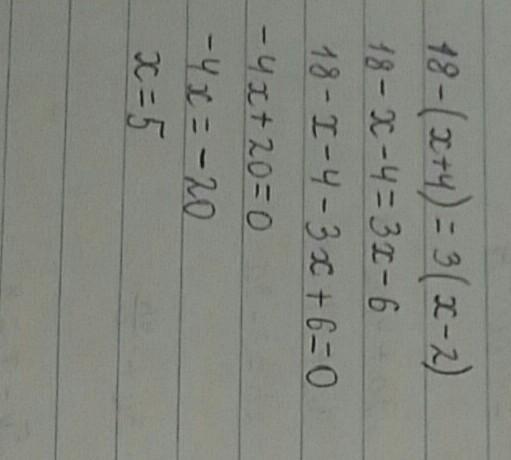 18-(x+4)=3(x-2)
18-x-4=3x-6
18-x-4-3x+6=0
-4x+20=0
-4x=-20
x=5